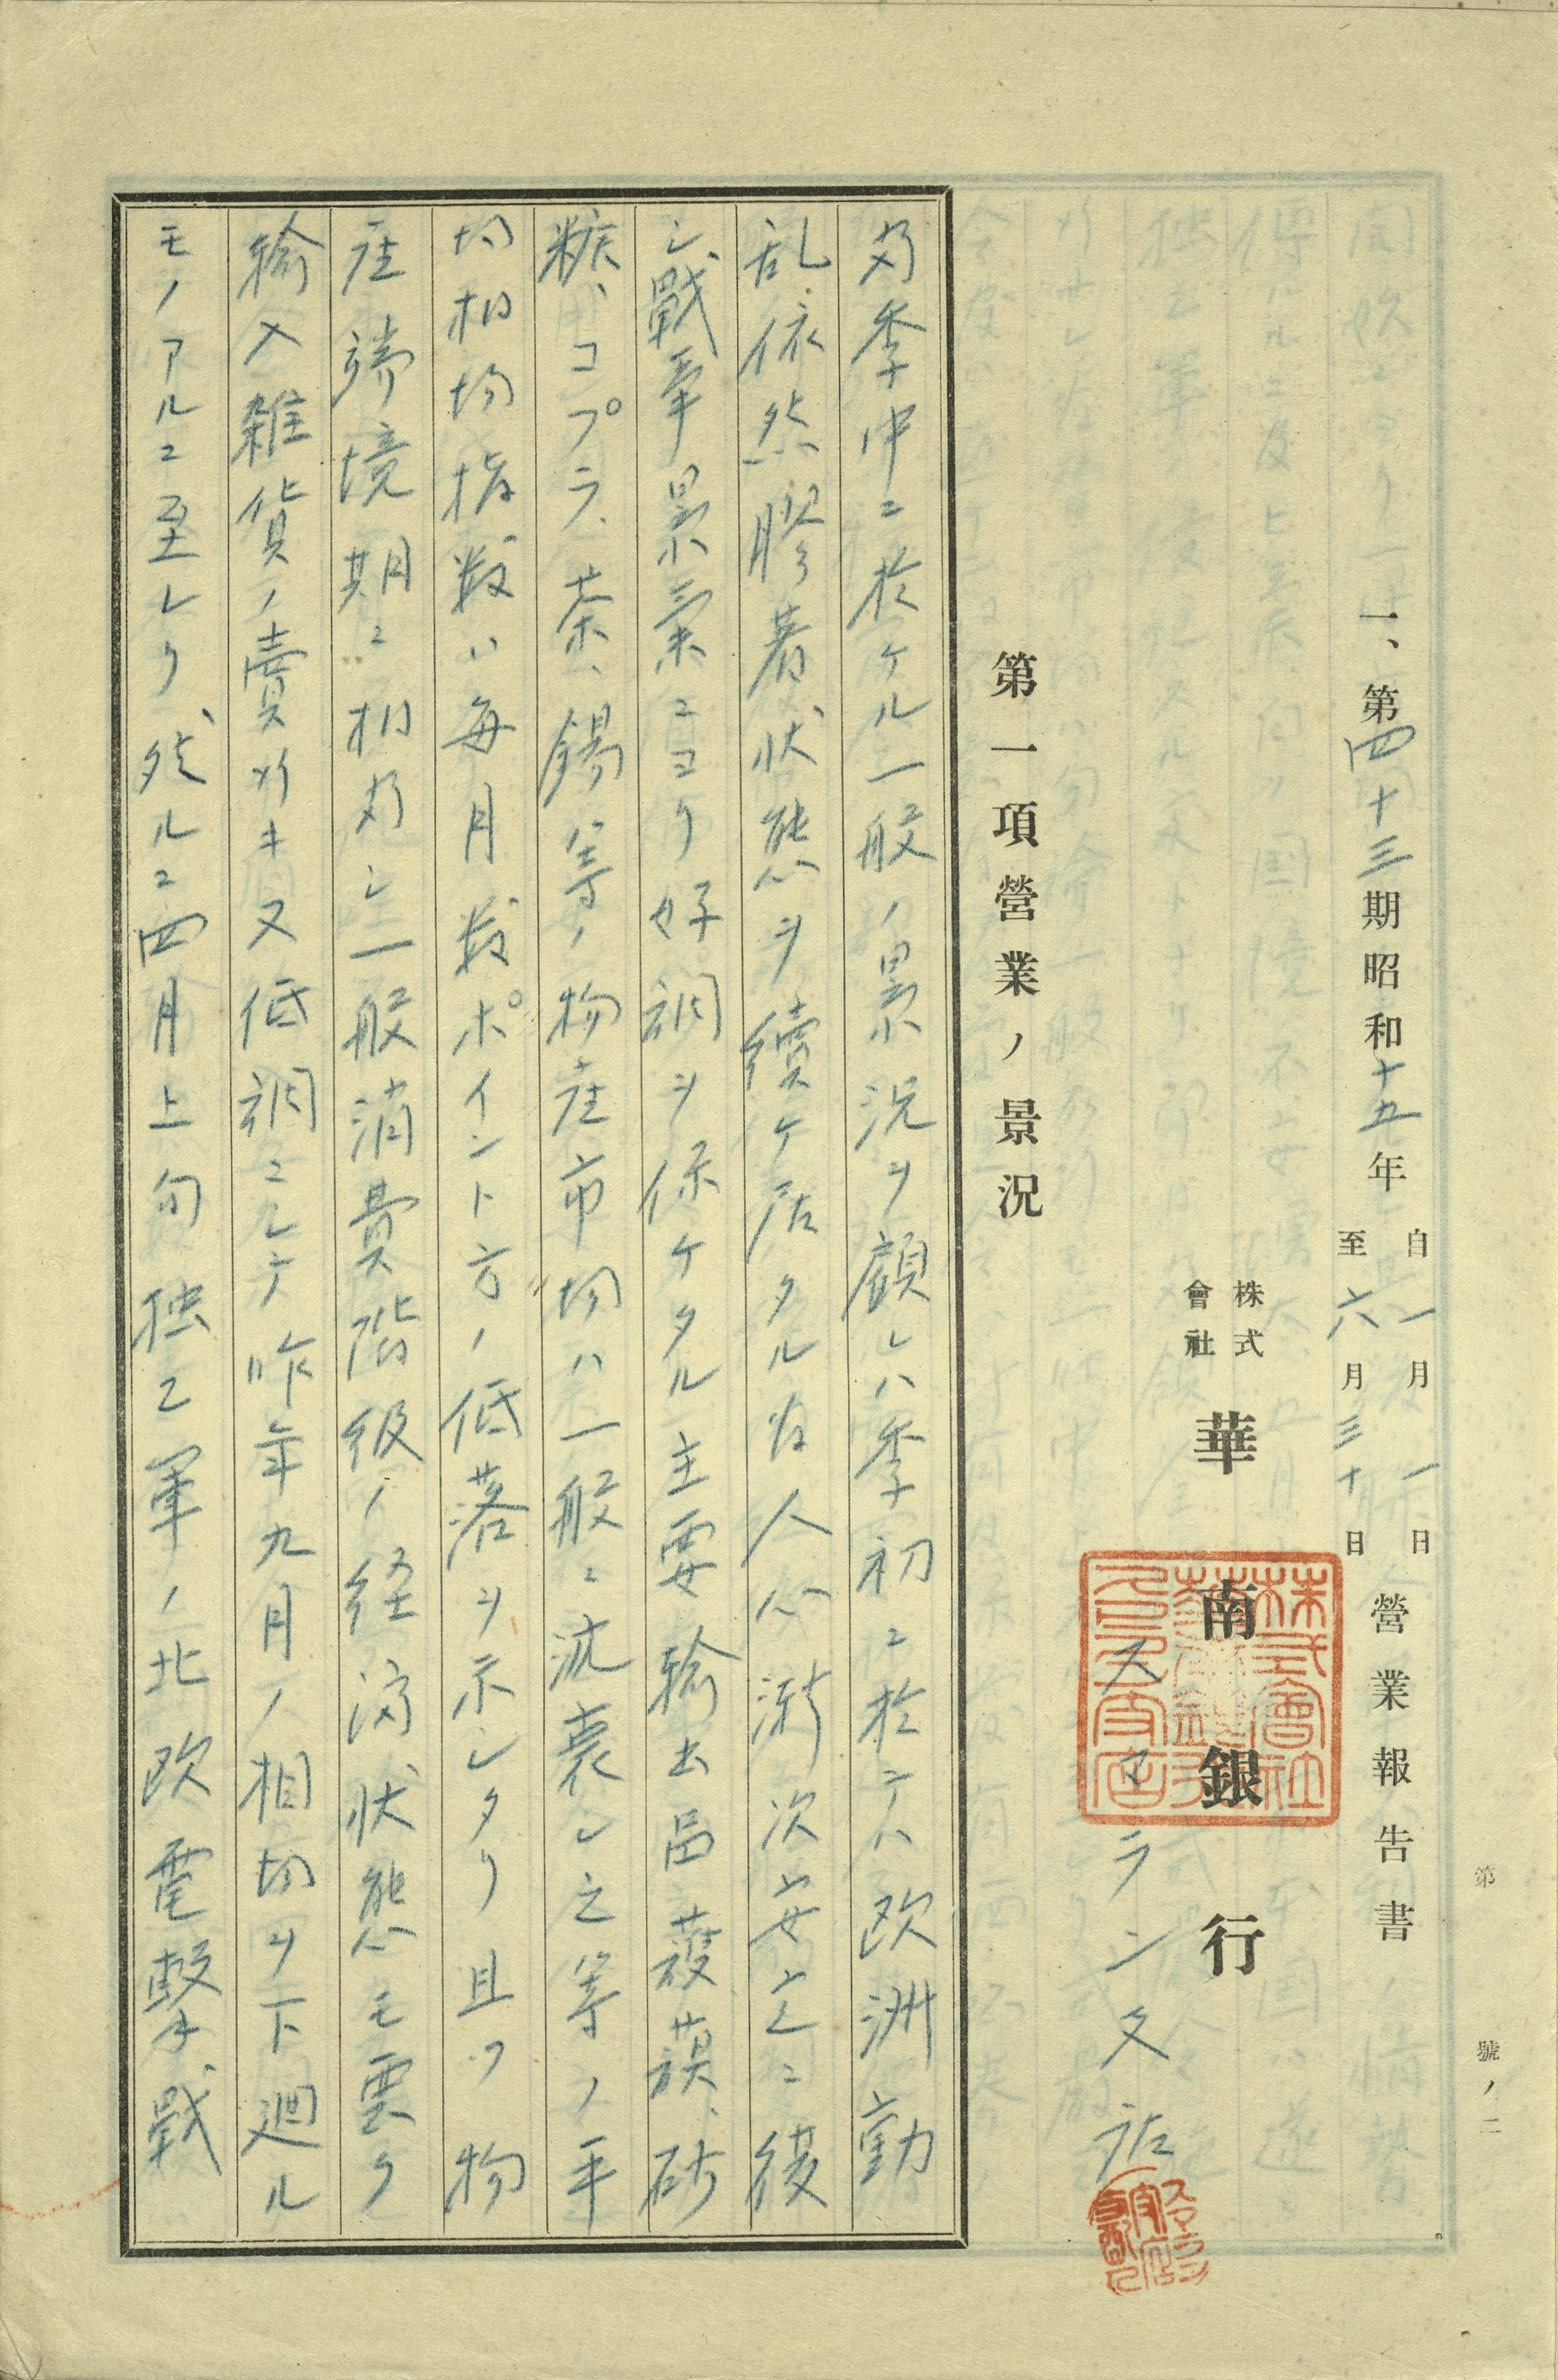 第 號ノ二
一、第四十三期昭和十五年自一月一日至六月三十日營業報告書
株式會社 華南銀行
スマラン支店
第一項營業ノ景況
当季中ニ於ケル一般ノ景況ヲ顧レハ季初ニ於テハ欧洲動
乱依然膠着状態ヲ続ケ居タル為人心漸次安定ニ復
シ戰争景氣ニヨリ好調ヲ保ケタル主要輸出品護謨、砂
糖、コプラ、茶、錫等ノ物産市場ハ一般ニ沈衰シ之等ノ平
均相場指数ハ毎月数ポイント方ノ低落ヲ示シタリ且ツ物
産端境期ニ相当シ一般消費階級ノ経済状態モ悪ク
輸入雑貨ノ賣行キ又低調ニシテ昨年九月ノ相場ヲ下廻ル
モノアルニ至レリ、然ルニ四月上旬独乙軍ノ北欧電撃戰